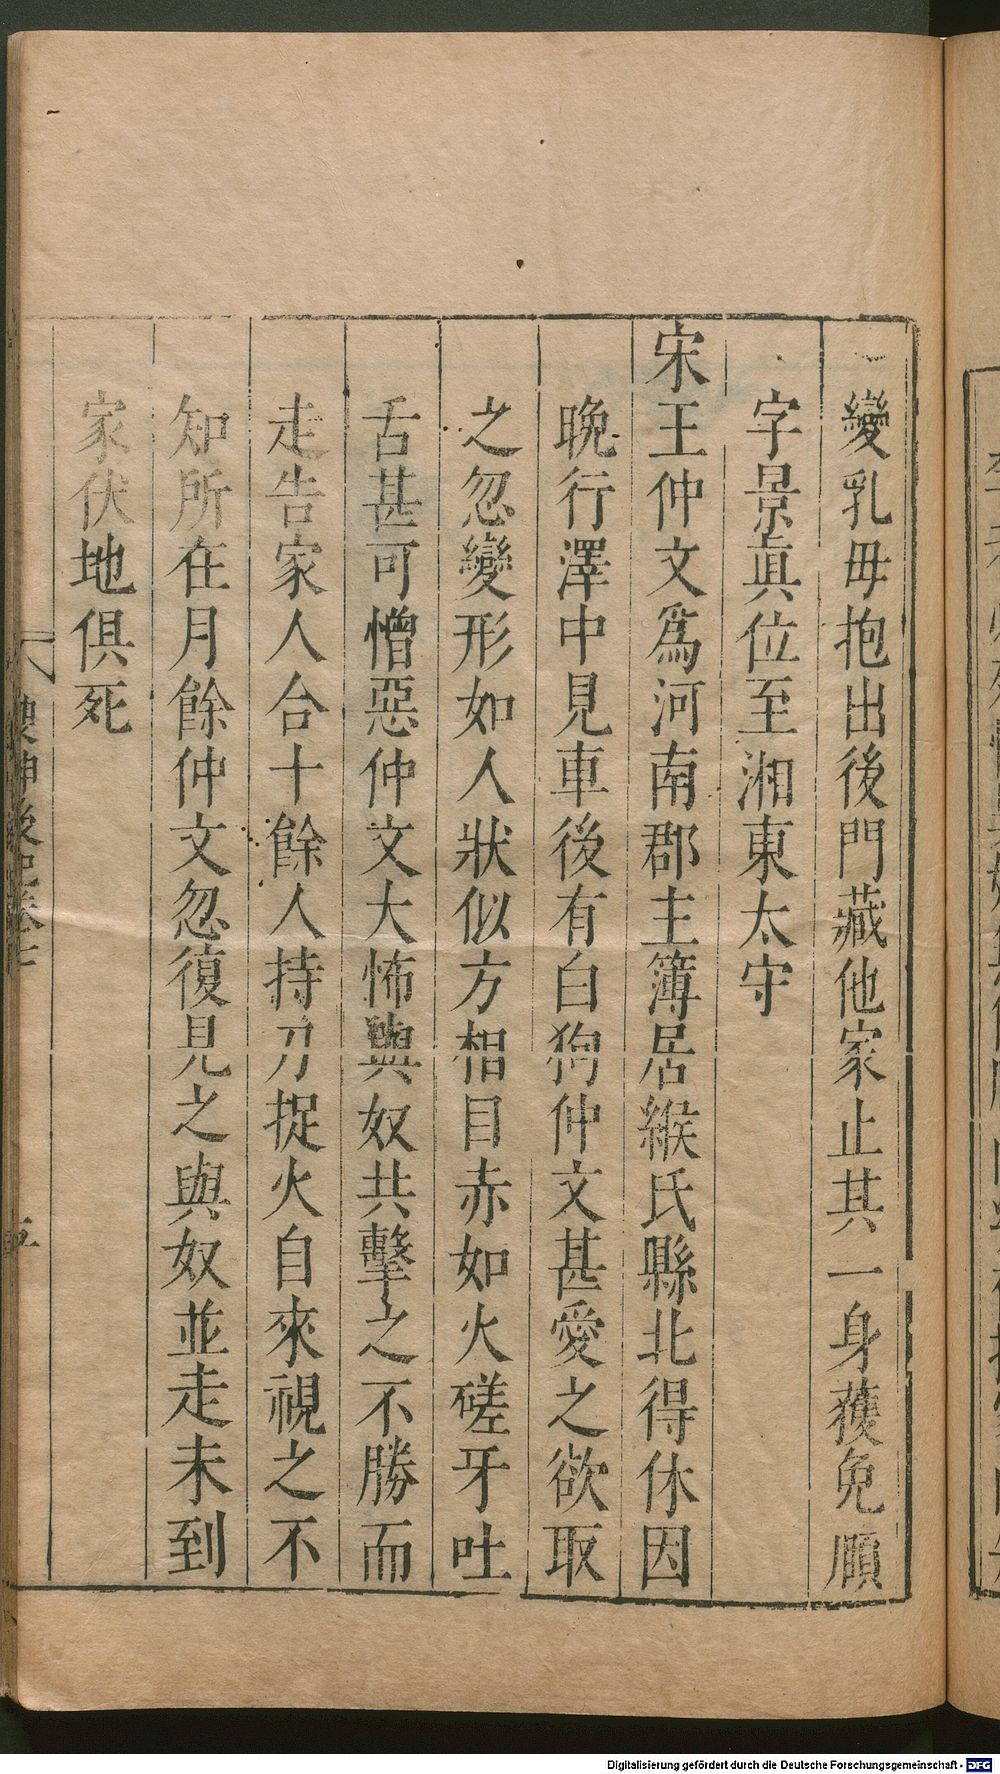 變乳母抱出後門藏他家止其一身獲免願
字景真位至湘東太守
宋王仲文爲河南郡主簿居緱氏縣北得休因
晚行澤中見車後有白狗仲文甚愛之欲取
之忽變形如人狀似方相目赤如火磋牙吐
舌甚可憎惡仲文大怖與奴共擊之不勝而
走告家人合十餘人持刀捉火自來視之不
知所在月餘仲文忽復見之與奴並走未到
家伏地俱死
搜神後記卷七
五
Digitalisierung gefördert durch die Deutsche Forschungsgemeinschaft - DFG